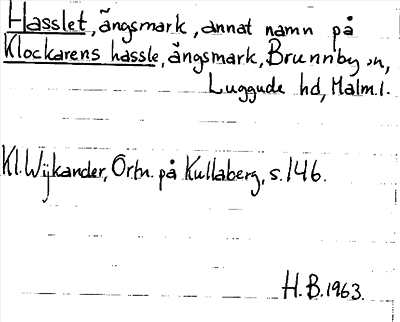 Hasslet, ängsmark, annat namn på
Klockarens hassle, ängsmark, Brunnby sn,
Luggude hd, Malm.l.
Kl. Wijkander, Ortn. på Kullaberg, s. 146.
H.B. 1963.